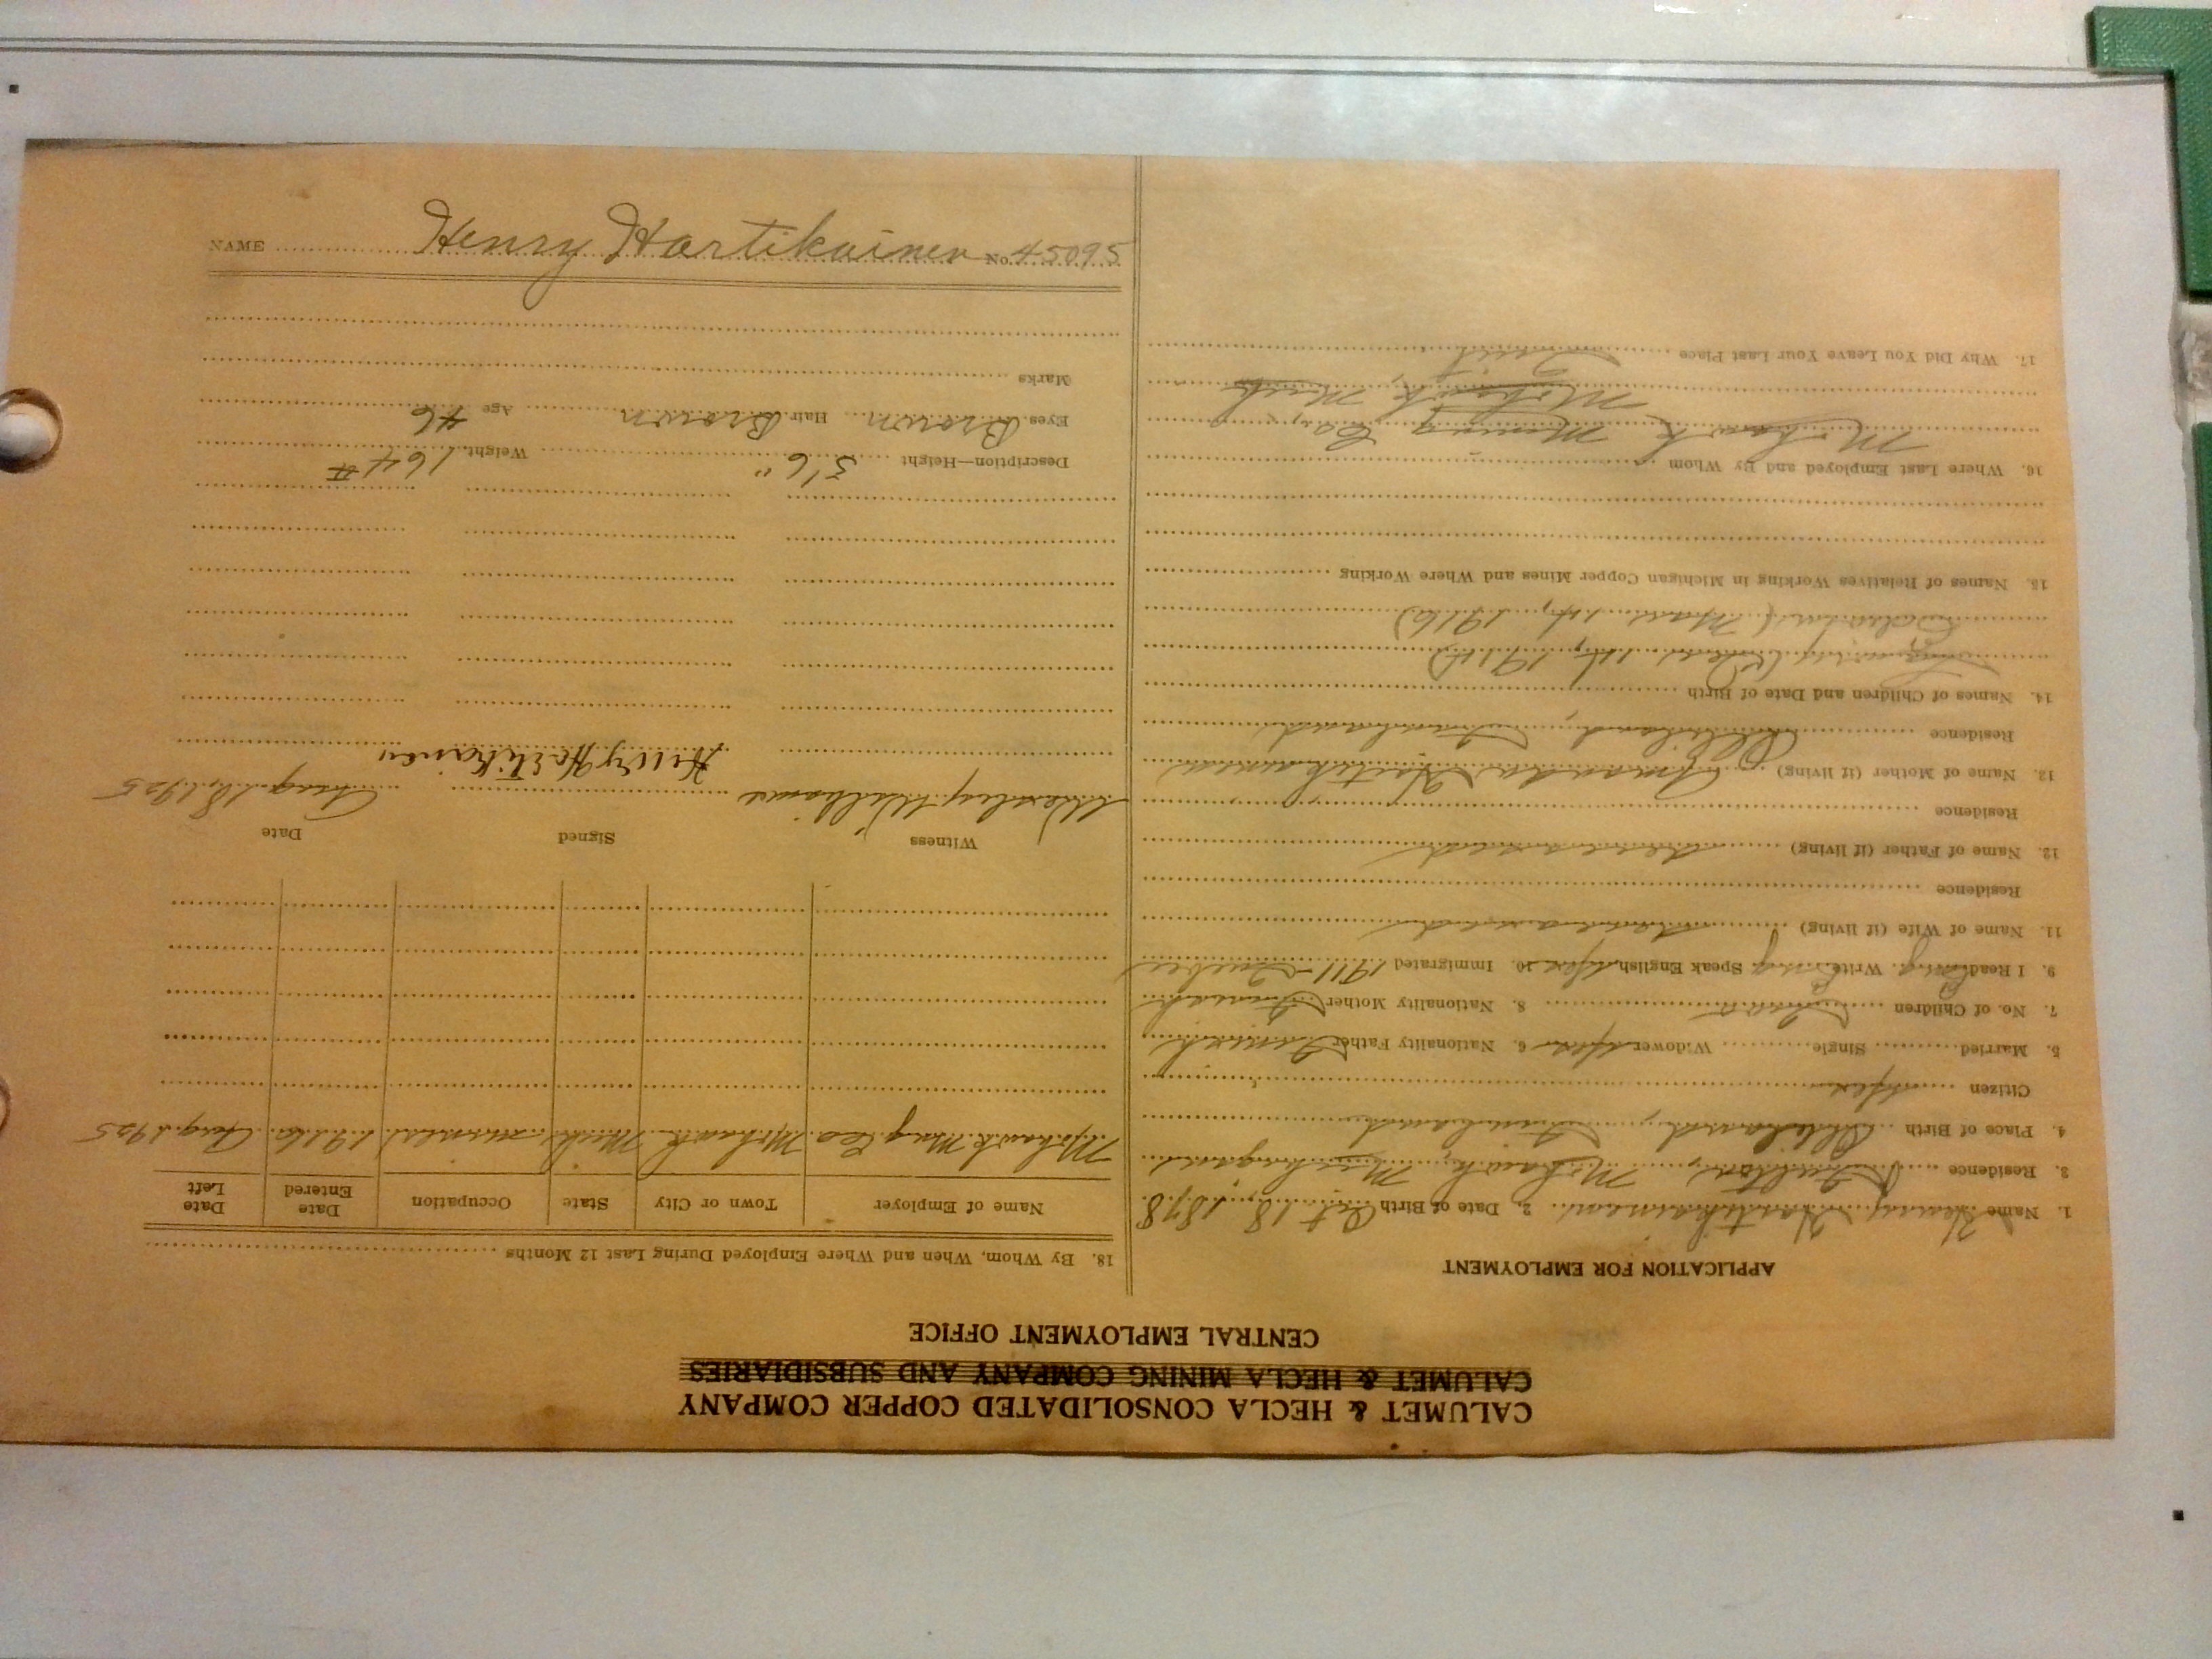 CALUMET & HECLA CONSOLIDATED COPPER COMPANY
CALUMET & HECLA MINING COMPANY AND SUBSIDIARIES
CENTRAL EMPLOYMENT OFFICE
APPLICATION FOR EMPLOYMENT
1. Name Henry Hartikainen 2. Date of Birth Oct 18, 1878
3. Residence Fulton, Mohawk, Michigan
4. Place of Birth Finland
Citizen Yes
5. Married Single Widower Yes 6. Nationality Father Finnish
7. No. of Children Two 8. Nationality Mother Finnish
9. I Read Eng. Write Eng Speak English Yes 10. Immigrated 1911 - Quebec
11. Name of Wife (if living) deceased
Residence
12. Name of Father (if living) deceased
Residence
13. Name of Mother (if living) Amanda Hartikainen
Residence Finland
14. Names of Children and Date of Birth
(Dec. 1st, 1914)
(Mar. 1st, 1916)
15. Names of Relatives Working in Michigan Copper Mines and Where Working
16. Where Last Employed and By Whom
Mohawk Mining Co.,
Mohawk, Mich
17. Why Did You Leave Your Last Place Quit
18. By Whom, When and Where Employed During Last 12 Months
Name of Employer Town or City State Occupation Date Entered Date Left
Mohawk Mng Co Mohawk Mich miner 1916 Aug. 1925
Witness Signed Date
Wesley Williams Henry Hartikainen Aug. 18, 1925
Description—Height 5' 6" Weight 164 #
Eyes Brown Hair Brown Age 46
Marks
NAME Henry Hartikainen No. 45095